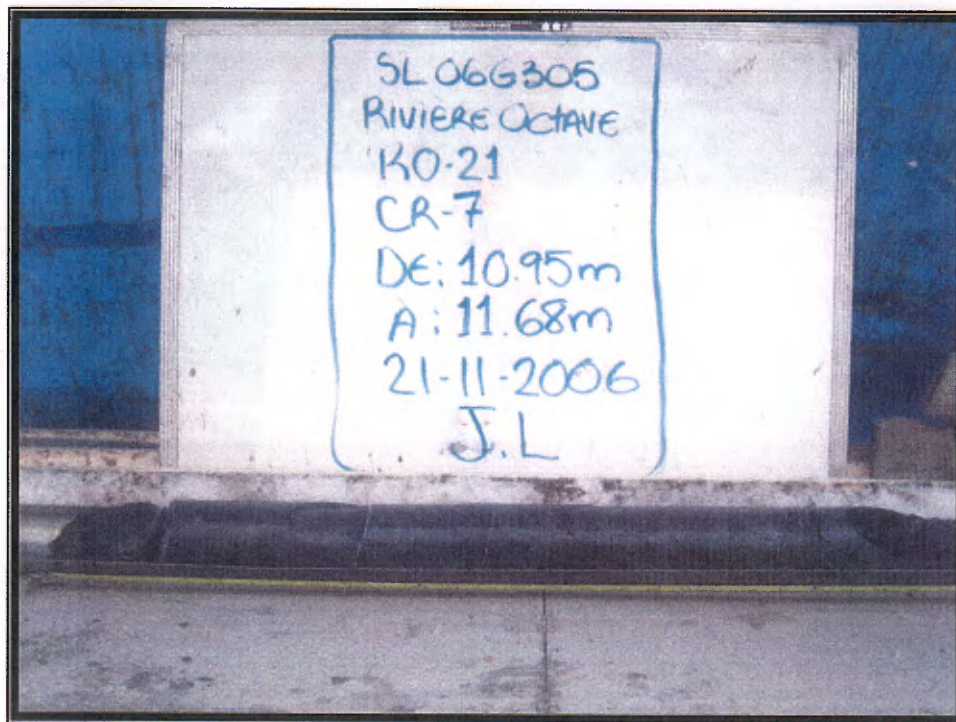 SL06G305
RIVIERE OCTAVE
KO-21
CR-7
DE: 10.95m
A: 11.68m
21-11-2006
J.L